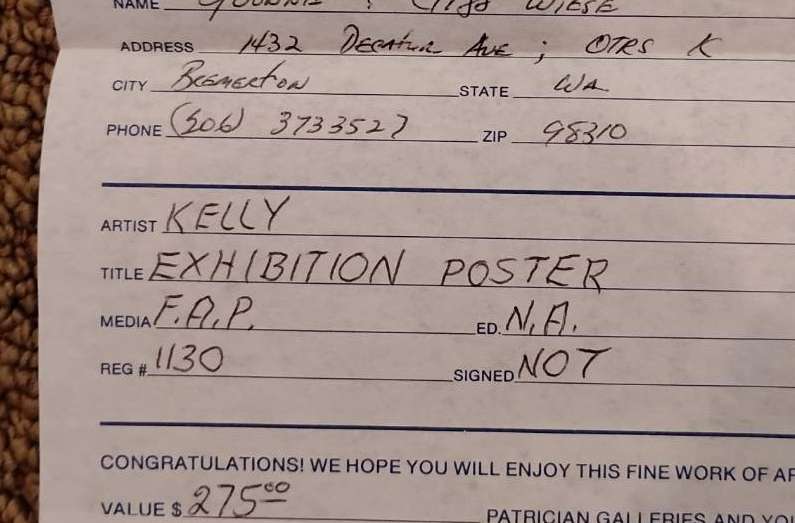 NAME WIESE
ADDRESS 1432 Decatur Ave ; QTRS K
CITY Bremerton STATE WA
PHONE (206) 3733527 ZIP 98310
ARTIST KELLY
TITLE EXHIBITION POSTER
MEDIA F.A.P. ED. N.A.
REG # 1130 SIGNED NOT
CONGRATULATIONS! WE HOPE YOU WILL ENJOY THIS FINE WORK OF AR
VALUE $ 275.00 PATRICIAN GALLERIES AND YOU